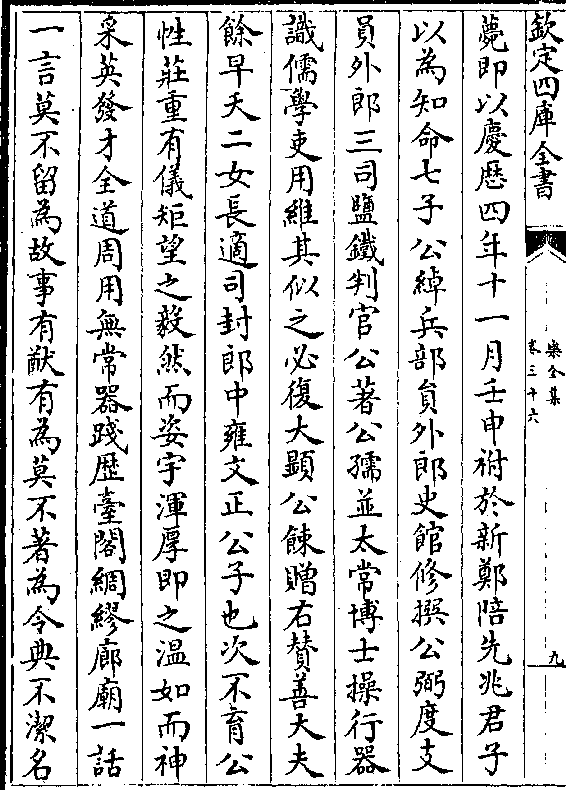 欽定四庫全書
樂全集
卷三十六
九
薨即以慶厯四年十一月壬申祔於新鄭陪先兆君子
以為知命七子公綽兵部員外郎史館修撰公弼度支
員外郎三司鹽鐵判官公著公孺並太常博士操行器
識儒學吏用維其似之必復大顯公餗贈右贊善大夫
餘早夭二女長適司封郎中雍文正公子也次不育公
性莊重有儀矩望之毅然而姿宇渾厚即之溫如而神
采英發才全道周用無常器踐歴臺閣綢繆廊廟一話
一言莫不留為故事有猷有為莫不著為令典不潔名